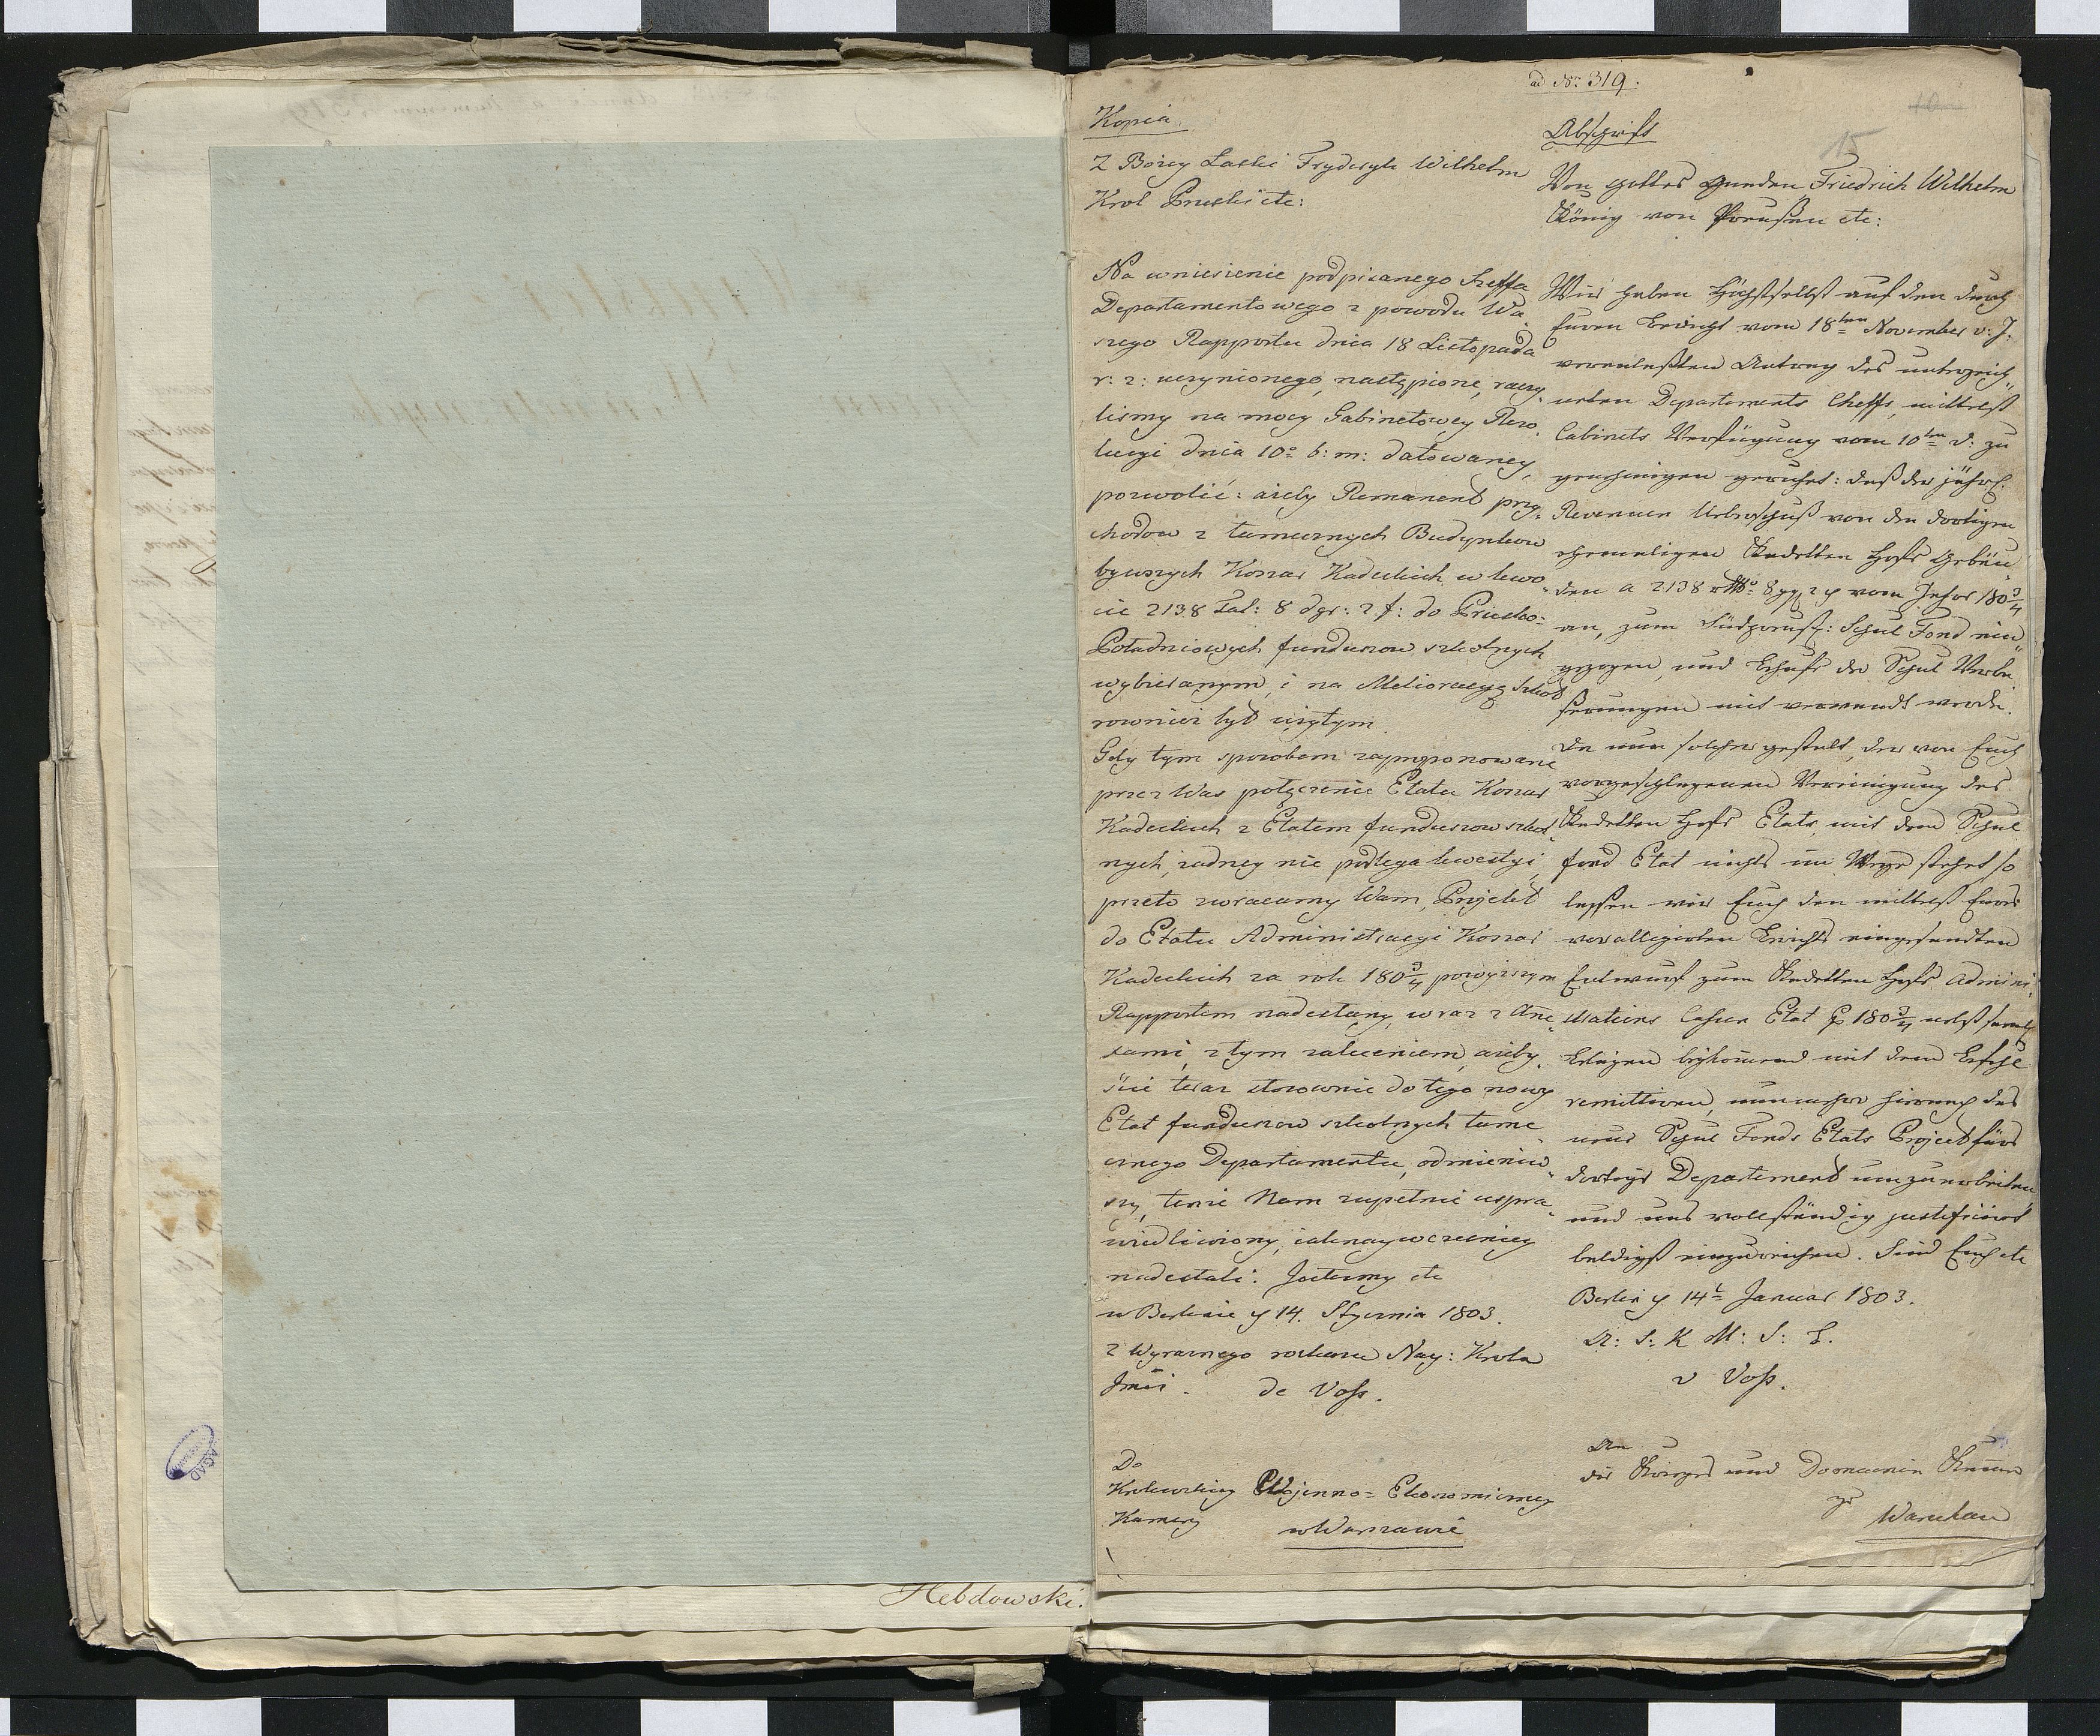 ad No 319.
15
Kopia.
Z Bozey Laski Fryderyk Wilhelm
Krol Pruski etc:
Na wniesienie podpisanego Szeffa
Departamentowego z powodu Wa
szego Rapportu dnia 18 Listopada
r: z: uczynionego, nastąpione, raczy
lismy na mocy Gabinetowey Rezo
lucyi dnia 10o b: m: datowaney,
pozwolić: aźeby Remanent przy
chodow z tamecznych Budynkow
bywszych Koszar Kadeckich w kwo
cie 2138 Tal: 8 dgr: 2 f: do Prusko=
Południowych funduszow szkolnych
wybieranym, i na Melioracyą Szkoł
rownieź był użytym.
Gdy tym sposobem zaymponowane
przez Was połączenie Etatu Koszar
Kadeckich z Etatem funduszow szkol
nych, zadney nie podlega kwestyi,
przeto zwracamy Wam, Projekt
do Etatu Administracyi Koszar
Kadeckich za rok 180¾ powyźszym
Rapportem nadesłany, wraz z Ane
xami, z tym zaleceniem, aźeby
ście teraz stosownie do tego nowy
Etat funduszow szkolnych tame
cznego Departamentu, odmieniw
szy, tenźe Nam zupełnie uspra
wiedliwiony, iaknaywczesniey
nadesłali. Jestesmy etc
w Berlinie d 14. Stycznia 1803.
z Wyraznego rozkazu Nay: Krola
Jmci. de Voß.
Do
Krolewskiey Woienno= Ekonomiczney
Kamery
w Warszawie
Abschrift
Von Gottes Gnaden Friedrich Wilhelm
König von Preußen etc:
Wir haben Höchstselbst auf den durch
Euren Bericht vom 18ten November v: J.
veranlaßten Antrag des unterzeich
neten Departements Cheffs, mittelst
Cabinets Verfügung vom 10ten d: zu
genehmigen geruhet: daß der jährl.
Revenuen Ueberschuß von den dortigen
ehemaligen Kadetten Hofs Gebäu
den a 2138 rthl 8 ggr 2 d vom Jahre 180¾
an, zum Südpreuß: Schul Fond ein
gezogen, und Behufs der Schul Verbe
ßerungen mit verwandt werde.
Da nun solcher gestalt, der von Euch
vorgeschlagenen Vereinigung des
Kadetten Hofs Etats mit dem Schul
fond Etat nichts im Wege stehet so
lassen wir Euch den mittelst Eures
verallegirten Berichts eingesandten
Entwurf zum Kadetten Hofs Admini
strations Cassen Etat p 180¾ nebst
Belägen beykommend mit dem Befehl
remittiren, nunmehro hiernach das
neue Schul Fonds Etats Project fürs
dortige Departement umzuarbeiten
und uns vollständig justificirt
baldigst einzureichen. Sind Euch etc
Berlin d 14t Januar 1803.
A: S: K M: S: B.
v Voß.
An
die Krieges und Domainen Kammer
zu
Warschau
Hebdowski.
AGAD